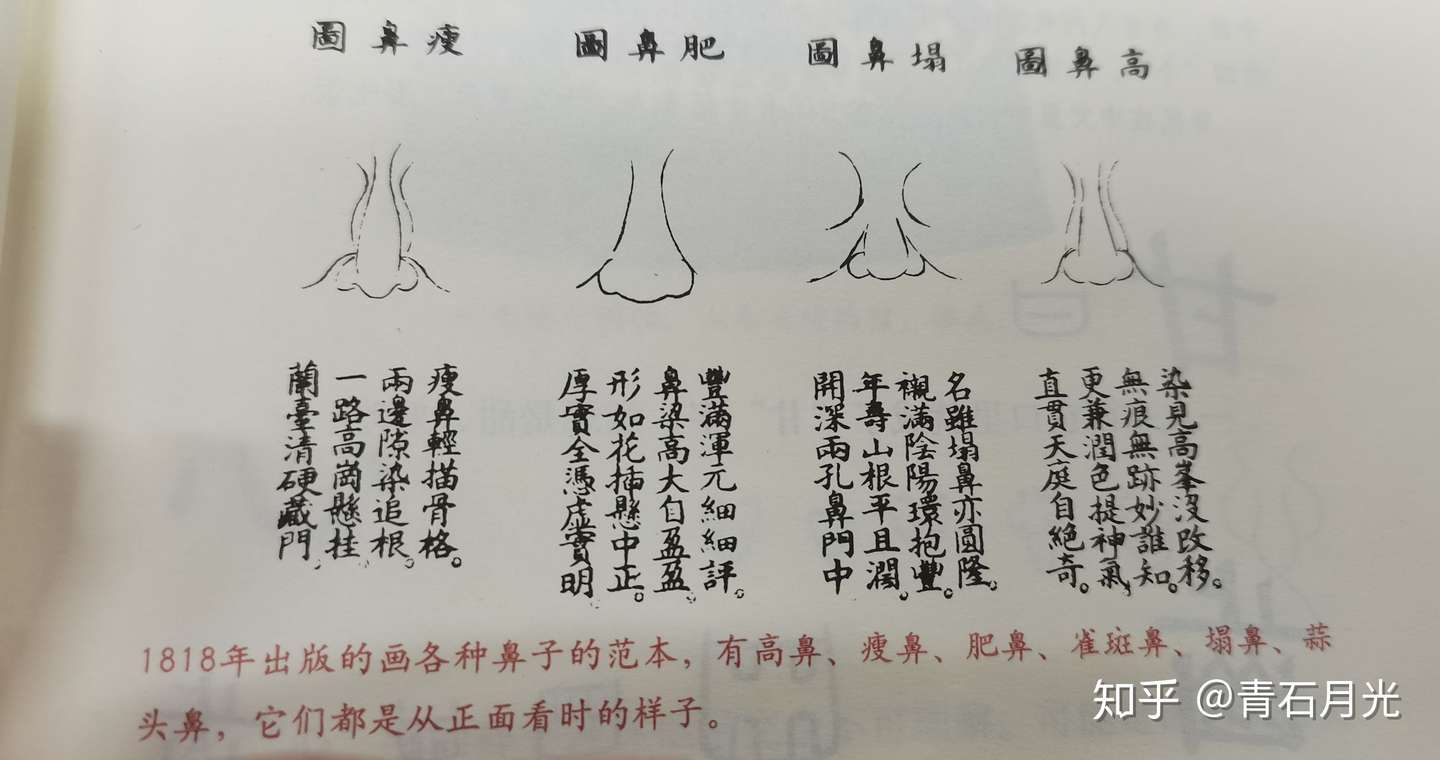 高鼻圖
染見高峯沒改移。
無痕無跡妙誰知。
更兼潤色提神氣，
直貫天庭自絕奇。
塌鼻圖
名雖塌鼻亦圓隆。
襯滿陰陽環抱豐。
年壽山根平且濶。
開深兩孔鼻門中
肥鼻圖
豐滿渾元細細評。
鼻染高大匀盈盈
形如花插懸中正。
厚實全憑虛實明
瘦鼻圖
瘦鼻輕描骨格。
兩邊隙染追根。
一路高崗懸挂
蘭臺清硬藏門
1818年出版的画各种鼻子的范本，有高鼻、瘦鼻、肥鼻、雀斑鼻、塌鼻、蒜
头鼻，它们都是从正面看时的样子。
知乎 @青石月光